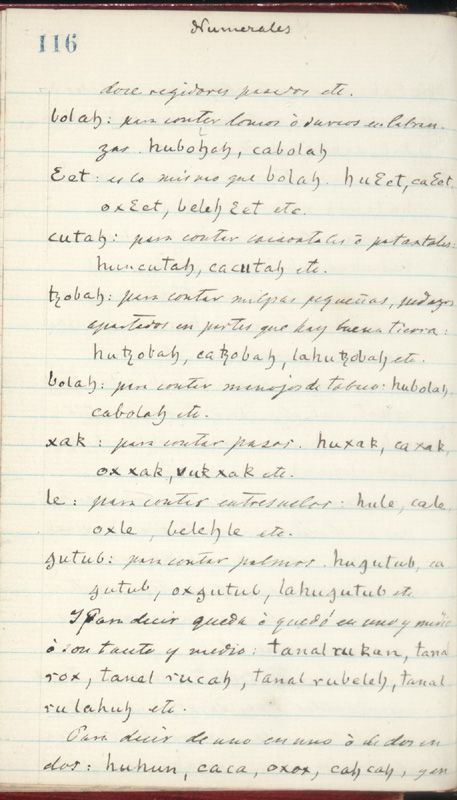 Numerales
116
doce regidores pasados etc.
bolaꜧ: para contar lomos ò surcos en labran
zas. huboꜧaꜧ, cabolaꜧ
Ɛet: es lo mismo que bolaꜧ. huƐet, caƐet.
oxƐet, beleꜧƐet etc.
cutaꜧ: para contar cacaotales ò pataxtales:
huncutaꜧ, cacutaꜧ etc.
tꜫobaꜧ: para contar milpas pequeñas, pedazos
apartados en partes que hay buena tierra:
hutꜫobaꜧ, catꜫobaꜧ, lahutꜫobaꜧ etc.
bolaꜧ: para contar manojos de tabaco: hubolaꜧ.
cabolaꜧ etc.
xak: para contar pasos. huxak, caxak,
oxxak, vukxak etc.
le: para contar entresuelos: hule, cale,
oxle, beleꜧle etc.
ꜫutub: para contar palmos. huꜫutub, ca
ꜫutub, oxꜫutub, lahuꜫutub etc
Y Para decir queda ò quedó en uno y medio
ò son tanto y medio: tanalrukan, tanal
rox, tanal rucaꜧ, tanal rubeleꜧ, tanal
rulahuꜧ etc.
Para decir de uno en uno ò de dos en
dos: huhun, caca, oxox, caꜧcaꜧ, y en